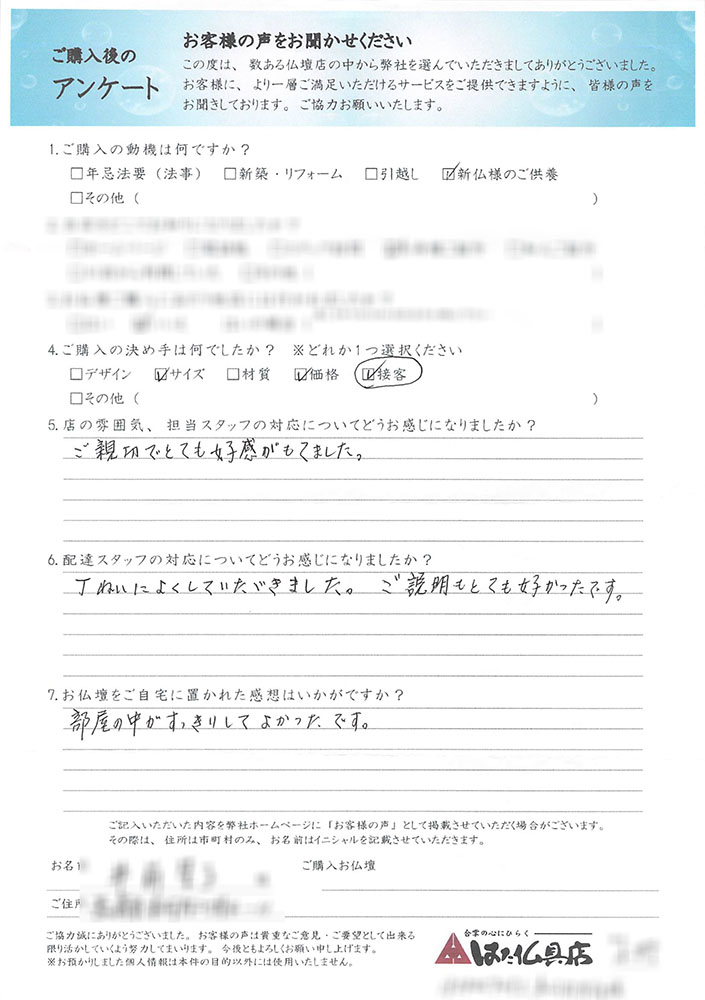 ご購入後の
アンケート
お客様の声をお聞かせください
この度は、数ある仏壇店の中から弊社を選んでいただきましてありがとうございました。
お客様に、より一層ご満足いただけるサービスをご提供できますように、皆様の声を
お聞きしております。ご協力お願いいたします。
1.ご購入の動機は何ですか？
□年忌法要（法事） □新築・リフォーム □引越し ☑新仏様のご供養
□その他（ ）
4.ご購入の決め手は何でしたか？ ※どれか1つ選択ください
□デザイン ☑サイズ □材質 ☑価格 ☑接客
□その他（ ）
5.店の雰囲気、担当スタッフの対応についてどうお感じになりましたか？
ご親切でとても好感がもてました。
6.配達スタッフの対応についてどうお感じになりましたか？
丁ねいによくしていただきました。ご説明もとても好かったです。
7.お仏壇をご自宅に置かれた感想はいかがですか？
部屋の中がすっきりしてよかったです。
ご記入いただいた内容を弊社ホームページに「お客様の声」として掲載させていただく場合がございます。
その際は、住所は市町村のみ、お名前はイニシャルを記載させていただきます。
お名前 ご購入お仏壇
ご住所
ご協力誠にありがとうございました。お客様の声は貴重なご意見・ご要望として出来る
限り活かしていくよう努力してまいります。今後ともよろしくお願い申し上げます。
※お預かりしました個人情報は本件の目的以外には使用いたしません。
合掌の心にひらく
はた仏具店